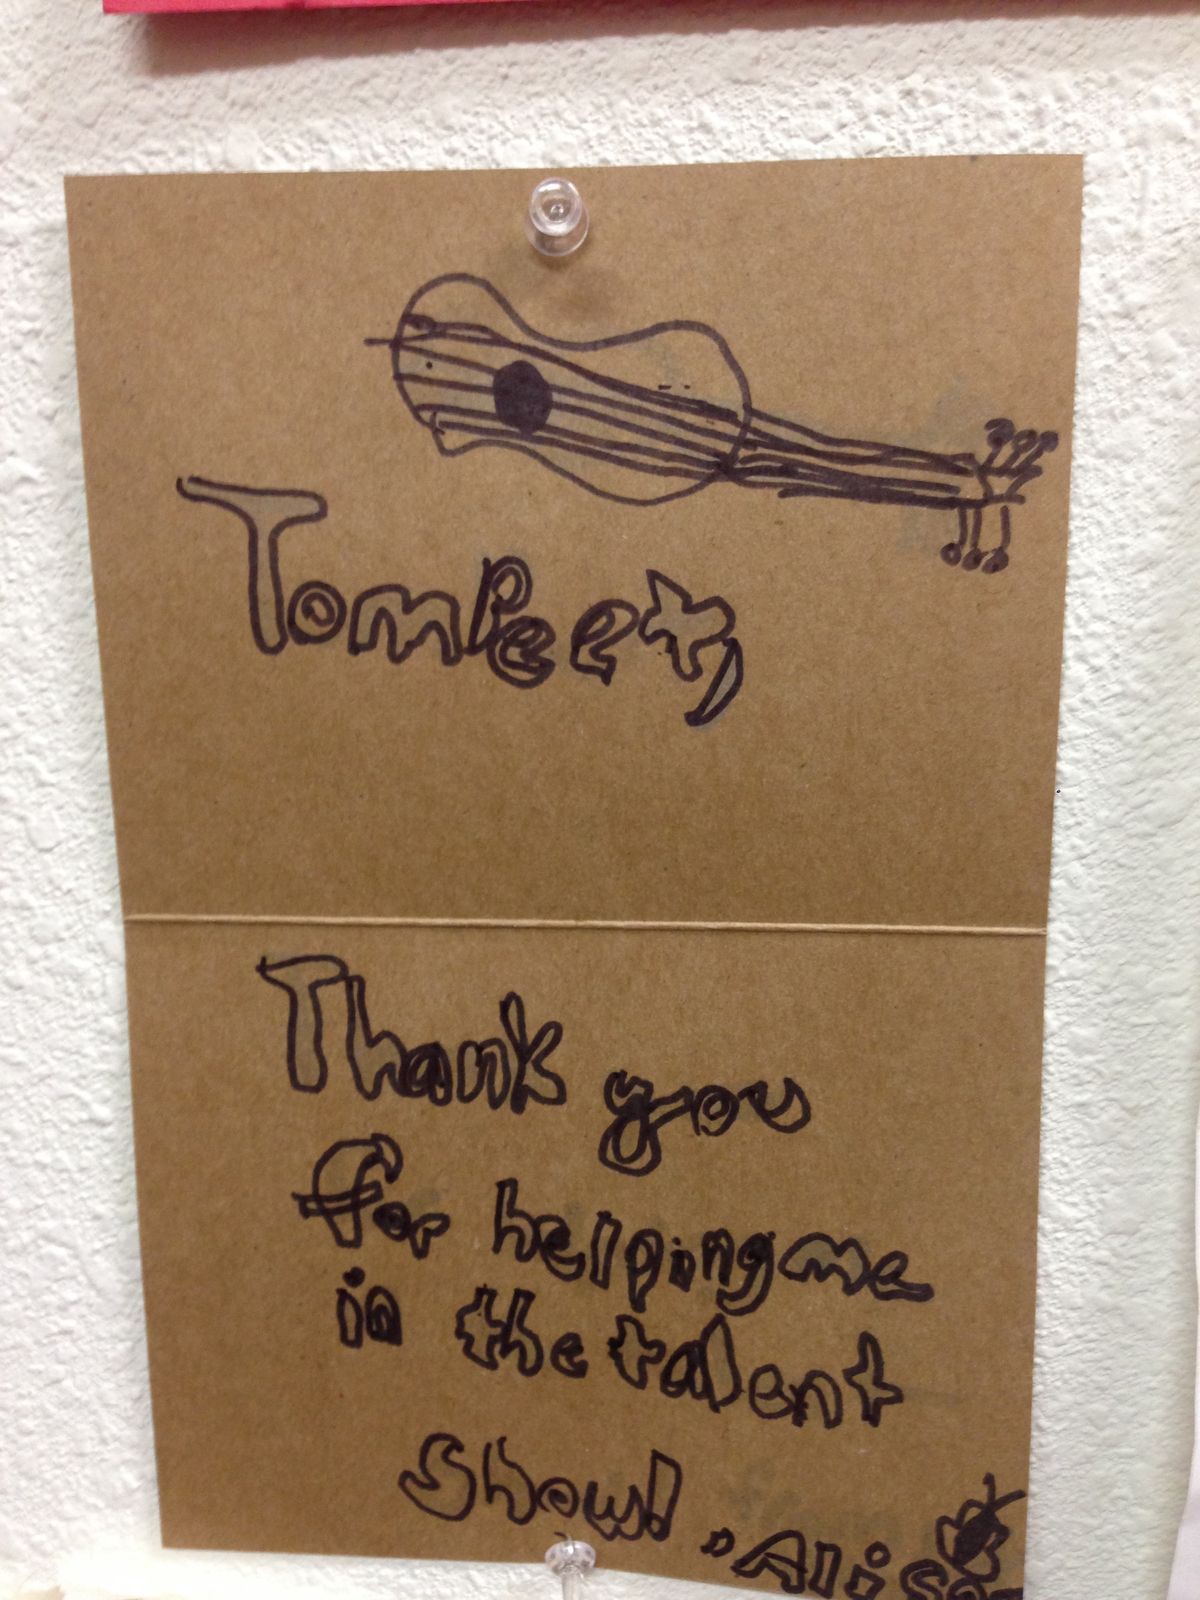 Tom Peet,
Thank you
for helping me
in the talent
Show!